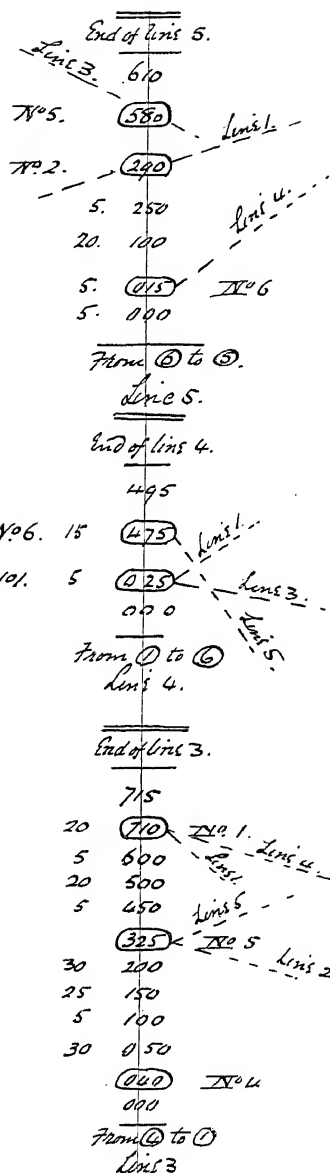 End of line 5.
Line 3.
610
No 5. 580
Line 1.
No 2. 290
5. 250
Line 4.
20. 100
5. 015 No 6
5. 000
From 6 to 5.
Line 5.
End of line 4.
495
No 6. 15 475
Line 1.
No 1. 5 025
Line 3.
000
Line 5.
From 1 to 6
Line 4.
End of line 3.
715
20 710 No 1.
Line 4.
5 600 Line 1.
20 500
5 450
Line 5
325 No 5
Line 2
30 200
25 150
5 100
30 050
040 No 4
000
From 4 to 1
Line 3